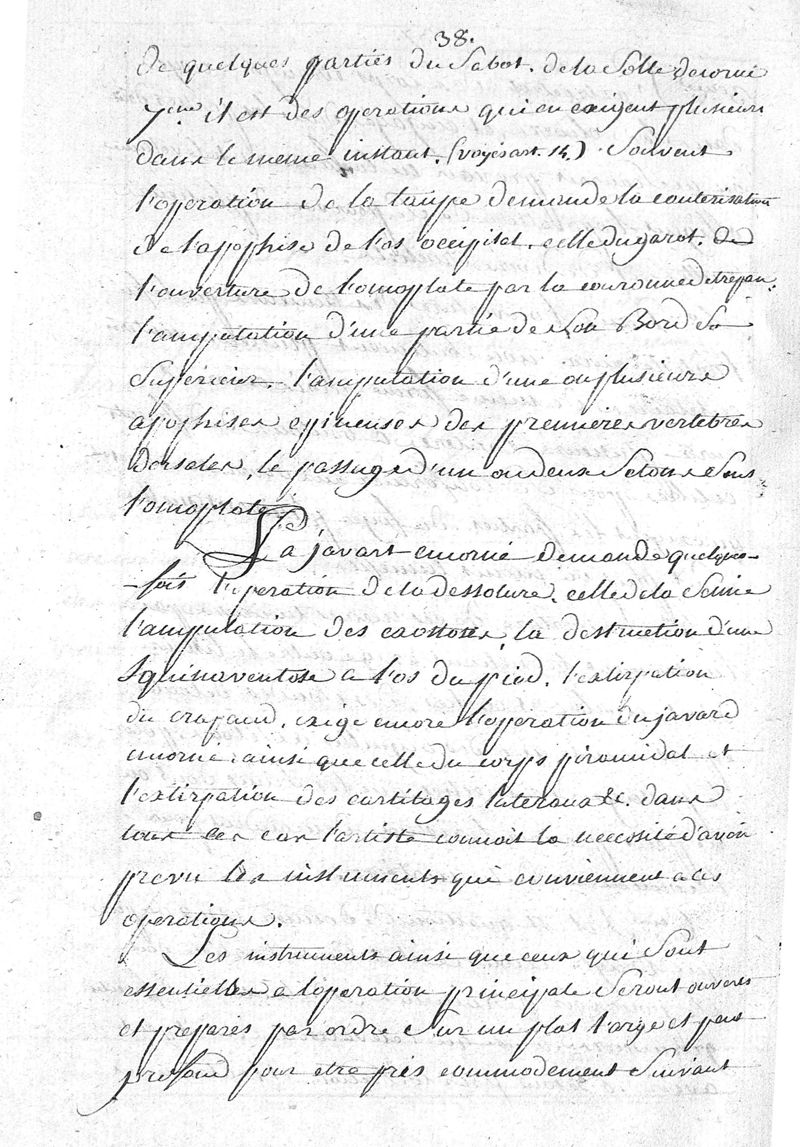 38.
de quelques parties du Sabot. de la Solle de corne
7eme il est des operations qui en exigent plusieurs
dans le meme instant. (voyés art. 14.) Souvent
l'operation de la taupe demande la cauterisation
de l'apophise de l'os occipital. celle du garot. de
l'ouverture de l'omoplate par la couronne de trepan.
l'amputation d'une partie de Son Bord Su
Superieur. l'amputation d'une ou plusieurs
apophises epineuses des premieres vertebres
dorsales, le passage d'un ou deux Setons Sous
l'omoplate
La javart encorné demande quelque-
-fois l'operation de la dessolure. celle de la Seime
l'amputation des exostoses, la destruction d'une
Squinaventose a l'os du pied. l'extirpation
du crapaud. exige encore l'operation du javard
encorné ainsi que celle du corps piramidal et
l'extirpation des cartilages lateraux &c. dans
tous ces cas l'artiste connoit la necessité d'avoir
prevu les instruments qui conviennent a ces
operations.
Les instruments ainsi que ceux qui Sont
essentielles a l'operation principale Seront ouverts
et preparés par ordre Sur un plat large et peu
profond pour etre pris commodement Suivant